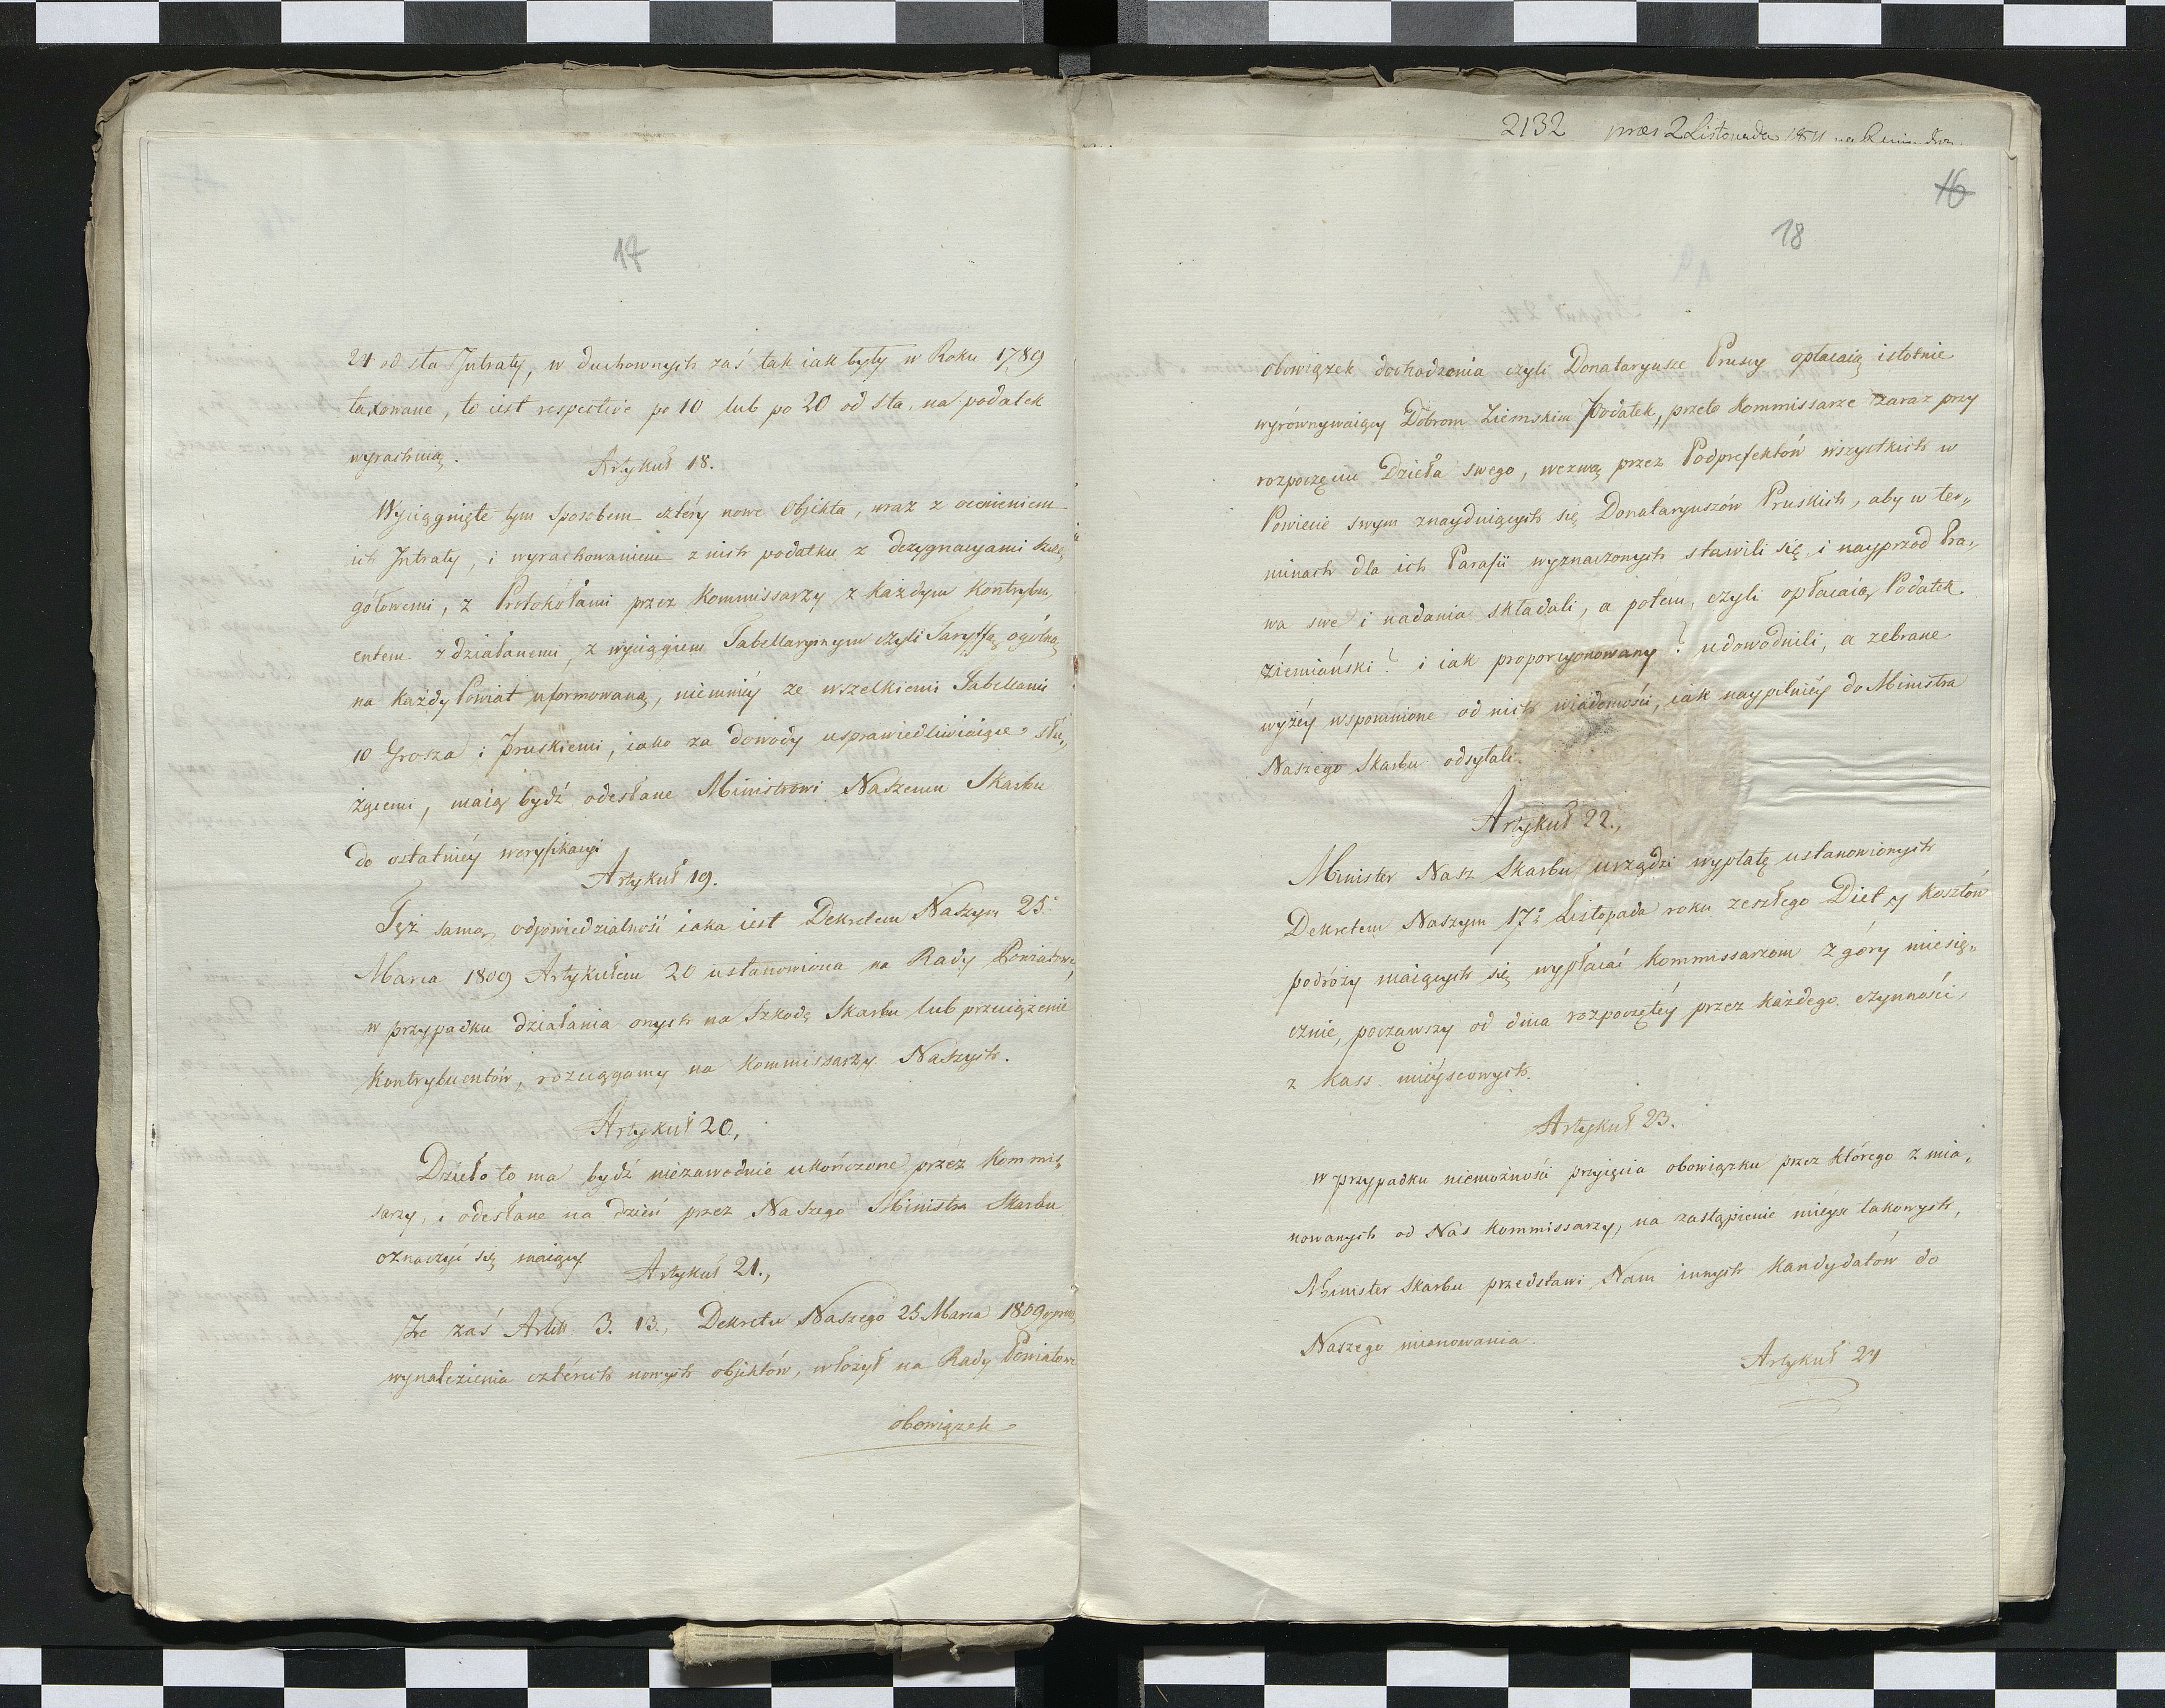 17
24 od sta Jntraty, w duchownych zaś tak iak były w Roku 1789
taxowane, to iest respective po 10 lub po 20 od sta, na podatek
wyrachuią.
Artykuł 18.
Wyciągnięte tym sposobem cztéry nowe Objekta, wraz z ocenieniem
ich Jntraty, i wyrachowaniem z nich podatku z dezygnacyami szcze„
gółowemi, z Protokółami przez Kommissarzy z każdym Kontrybu„
entem zdziałanemi, z wyciągiem Tabellarycznym czyli Taryffą ogólną
na każdy Powiat uformowaną, niemniéy ze wszelkiemi Tabellami
10 Grosza i pruskiemi, iako za dowody usprawiedliwiaiące słu„
żącemi, maią bydź odesłane Ministrowi Naszemu Skarbu
do ostatniéy weryfikacyi
Artykuł 19.
Tęż samą odpowiedzialność iaka iest Dekretem Naszym 25
Marca 1809 Artykułem 20 ustanowiona na Rady Powiatowe,
w przypadku działania onych na szkodę Skarbu lub przeciążenie
Kontrybuentów, rozciągamy na Kommissarzy Naszych.
Artykuł 20.,
Dzieło to ma bydź niezawodnie ukończone przez Kommis„
sarzy, i odesłane na dzień przez Naszego Ministra Skarbu
oznaczyć się maiący
Artykuł 21.,
Że zaś Artłł 3. 13., Dekretu Naszego 25 Marca 1809
wynalezienia cztérech nowych objektów, włożył na Rady Powiatowe
obowiązek
2132 præs 2 Listopada
16
18
obowiązek dochodzenia czyli Donataryusze Pruscy opłacaią istotnie
wyrównywaiący Dobrom Ziemskim Podatek, przeto Kommissarze zaraz przy
rozpoczęciu Dzieła swego, wezwą przez Podprefektów wszystkich w
Powiecie swym znayduiących się Donataryuszów Pruskich, aby w ter„
minach dla ich Parafii wyznaczonych stawili się, i nayprzód Pra„
wa swe i nadania składali, a potém, czyli opłacaią Podatek
ziemiański? i iak proporcyonowany? udowodnili, a zebrane
wyżéy wspomnione od nich wiadomości, iak naypilniéy do Ministra
Naszego Skarbu odsyłali.
Artykuł 22.,
Minister Nasz Skarbu urządzi wypłatę ustanowionych
Dekretem Naszym 17º Listopada roku zeszłego Diet y kosztów
podróży maiących się wypłacać Kommissarzom z góry miesię„
cznie, począwszy od dnia rozpoczętéy przez każdego czynności,
z Kass mieyscowych.
Artykuł 23.
w przypadku niemożności przyięcia obowiązku przez którego z mia„
nowanych od Nas Kommissarzy, na zastąpienie mieysc takowych,
Minister Skarbu przedstawi Nam innych Kandydatów do
Naszego mianowania.
Artykuł 24